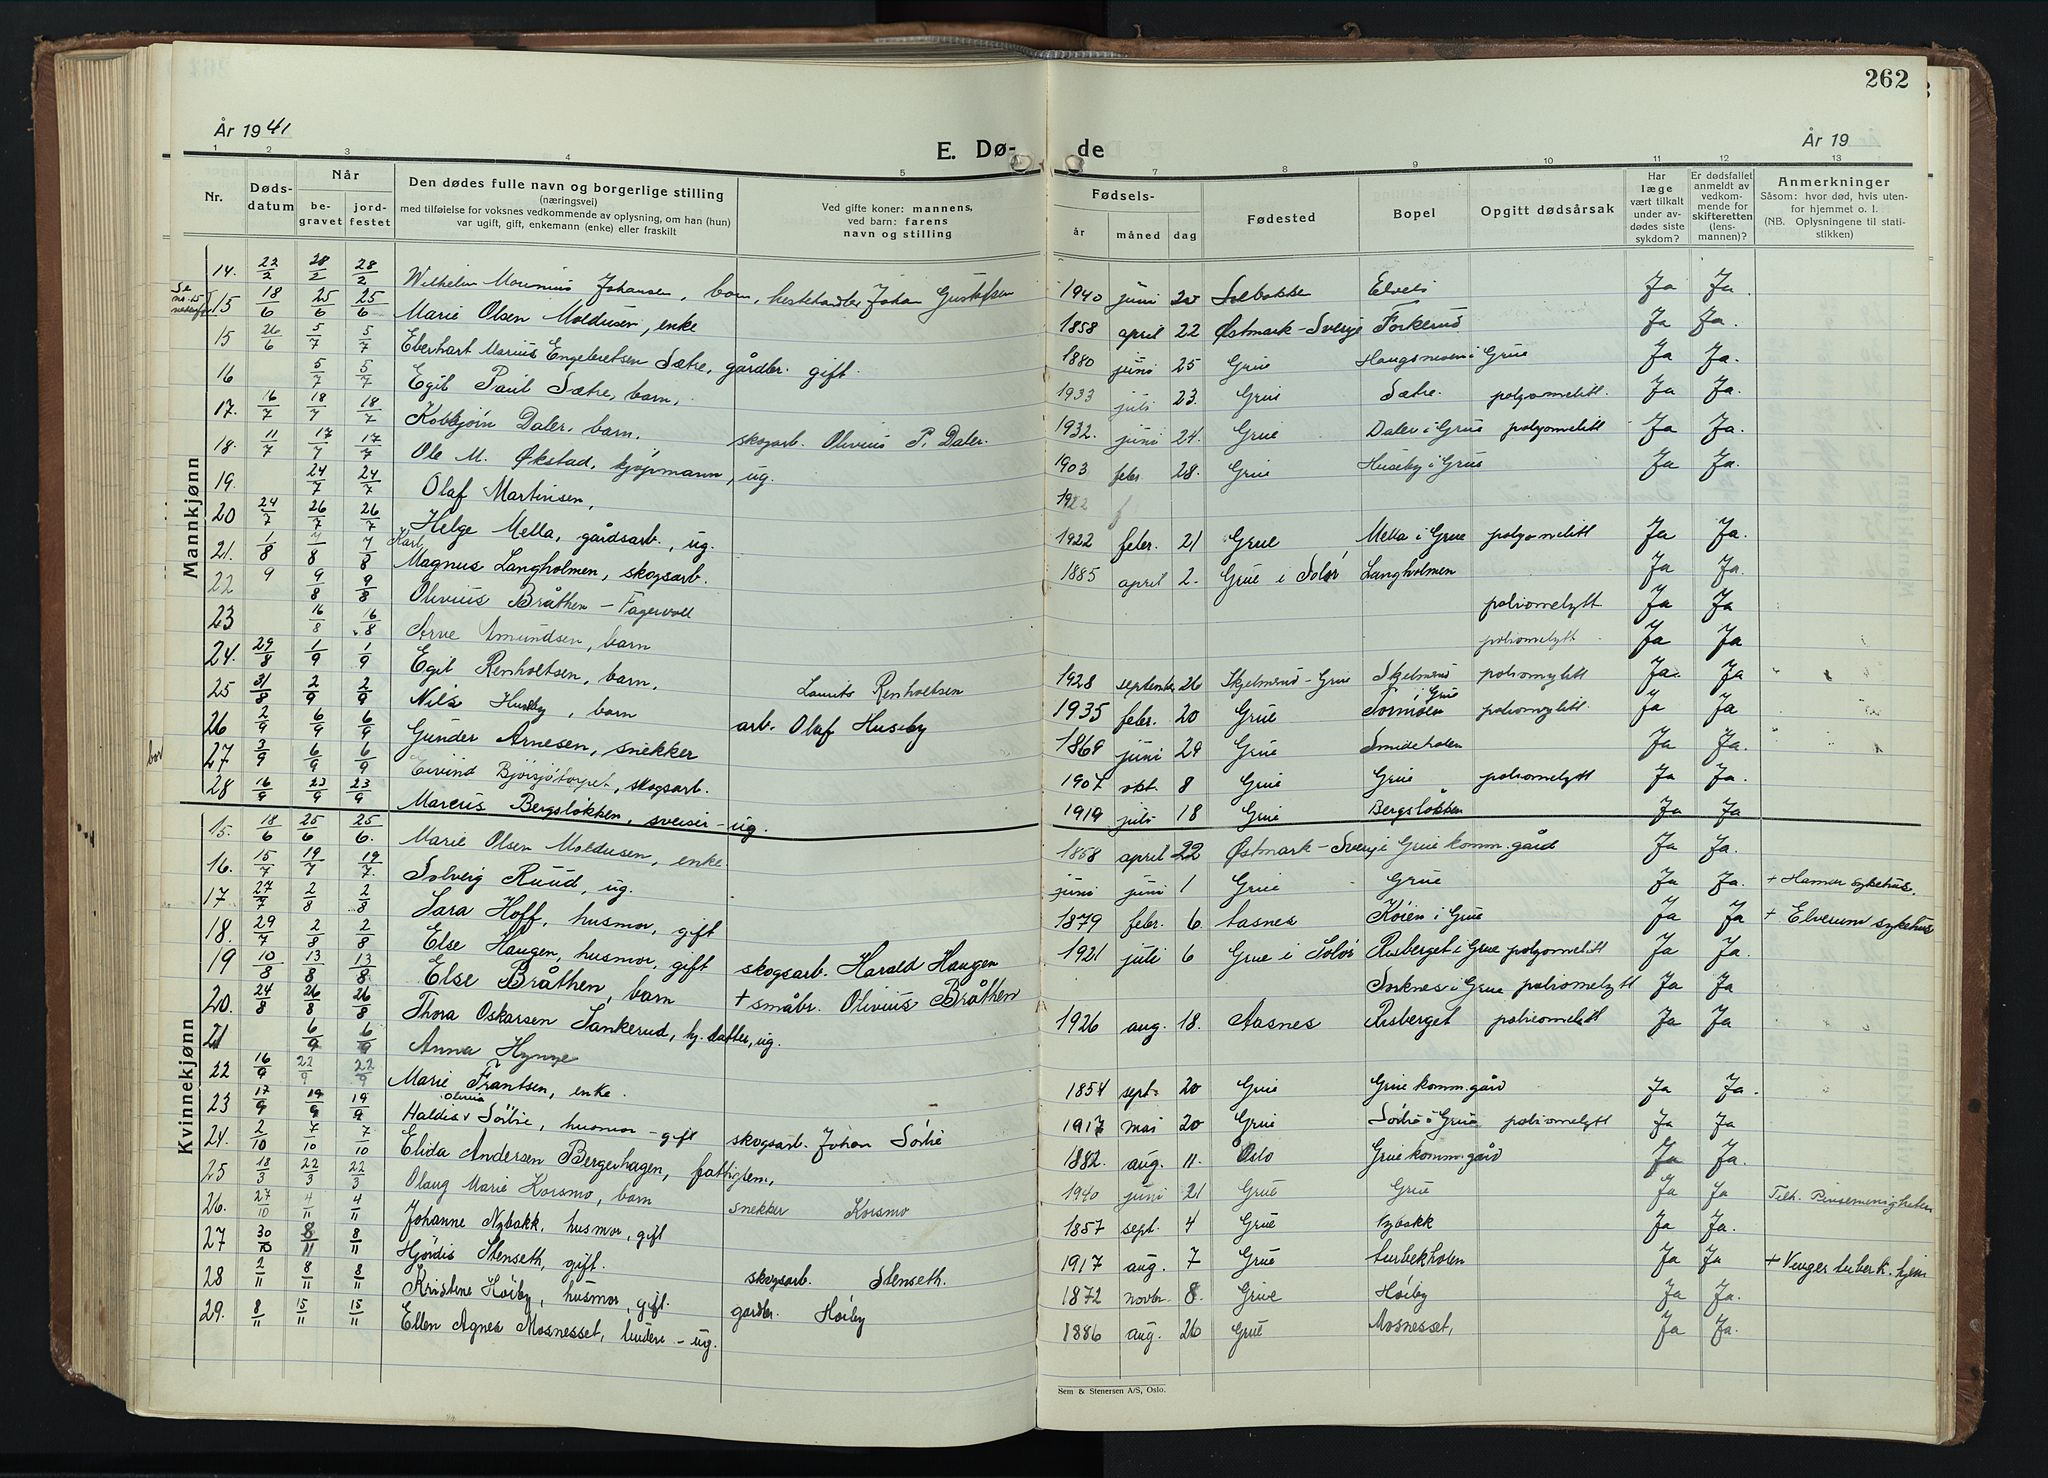 262
År 1941
E. Dø-
de
År 19
1 2 3 4 5 7 8 9 10 11 12 13
Nr.
Døds-
datum
Når
be-
gravet
jord-
festet
Den dødes fulle navn og borgerlige stilling
(næringsvei)
med tilføielse for voksnes vedkommende av oplysning, om han (hun)
var ugift, gift, enkemann (enke) eller fraskilt
Ved gifte koner: mannens,
ved barn: farens
navn og stilling
Fødsels-
år måned dag
Fødested
Bopel
Opgitt dødsårsak
Har
læge
vært tilkalt
under av-
dødes siste
sykdom?
Er dødsfallet
anmeldt av
vedkom-
mende for
skifteretten
(lens-
mannen)?
Anmerkninger
Såsom: hvor død, hvis uten-
for hjemmet o. l.
(NB. Oplysningene til stati-
stikken)
Mannkjønn
14. 22/2 28/2 28/2 Wilhelm Johansen, barn, hestehandler Johan Gustafsen 1940 juni 20 Solbakken Ja Ja.
Se nr. 15 nedenfor
15 18/6 25/6 25/6 Marie Olsen Moldusen, enke 1858 april 22 Østmark-Sverje Ja Ja.
15 26/6 5/7 5/7 Eberhart Marius Engebretsen Sætre, gårdbr. gift. 1880 juni 25 Grue Haugsmoen i Grue Ja Ja.
16 5/7 5/7 Egil Paul Sætre, barn. 1933 juli 23. Grue Sætre. polyomelitt Ja Ja.
17. 16/7 18/7 18/7 Daler, barn. skogsarb. Olivius P. Daler. 1932. juni 24. Grue Daler i Grue polyomelitt Ja Ja.
18. 11/7 17/7 17/7 Ole M. Økstad, kjøpmann, ug. 1903 febr 28. Grue Huseby i Grue Ja Ja.
19. 24/7 24/7 Olaf Martinsen, 1922
20 24/7 26/7 26/7 Helge Mella, gårdsarb., ug. 1922 febr. 21 Grue Mella i Grue polyomelitt Ja Ja.
21. 1/8 7/8 7/8 Karl Magnus Langholmen, skogsarb. 1885 april 2. Grue i Solør Langholmen Ja Ja.
22 9 9/8 9/8 Olivius Bråthen - Fagervoll poliomelytt Ja Ja
23 16/8 16/8 Arve Amundsen, barn poliomelytt Ja Ja
24. 29/8 1/9 1/9 Egil Renholtsen, barn. Laurits Renholtsen 1928 september 26 Skjelmerud-Grue Skjelmerud poliomylitt Ja. Ja
25 31/8 2/9 2/9 Nils Huseby, barn arb. Olaf Huseby 1935 febr. 20 Grue Grue poliomylitt Ja Ja
26 2/9 6/9 6/9 Gunder Arnesen, snekker 1869 juni 29 Grue Ja Ja
27 3/9 6/9 6/9 Eivind Bjørsjötorpet, skogsarb. 1907 okt. 8 Grue Grue poliomelytt Ja Ja.
28 16/9 23/9 23/9 Marcus Bergsløkken, sveiser - ug. 1919 juli 18 Grue Bergsløkken Ja Ja
Kvinnekjønn
15. 18/6 25/6 25/6. Marie Olsen Moldusen, enke. 1858 april 22 Østmark-Sverje Grue komm. gård Ja Ja.
16. 15/7 19/7 19/7 Solveig Ruud, ug. juni juni 1 Grue Grue Ja Ja. + Hamar sykehus.
17 27/7 2/8 2/8 Sara Hoff, husmor, gift 1879 febr. 6. Aasnes Köien i Grue Ja Ja + Elverum sykehus
18. 29/7 2/8 2/8 Else Haugen, husmor, gift skogsarb. Harald Haugen 1921 juli 6 Grue i Solør Risberget i Grue polyomelitt Ja Ja.
19 10/8 13/8 13/8 Else Bråthen, barn + småbr. Olivius Bråthen Sorknes i Grue poliomelytt Ja Ja
20. 24/8 26/8 26/8 Thora Oskarsen Tankerud, hj. datter, ug. 1926 aug. 18. Aasnes Risberget poliomelytt Ja Ja
21 6/9 6/9 Anna Hynne
22 16/9 22/9 22/9 Marie Frantsen, enke. 1854 sept. 20 Grue Grue komm. gård Ja Ja.
23 17/9 19/9 19/9 Haldis Olivia Sörlie, husmor - gift skogsarb. Johan Sörlie 1917 mai 20 Grue Sörlie i Grue poliomelytt Ja Ja.
24. 2/10 7/10 7/10 Elida Andersen Bergerhagen, fattiglem. 1882. aug. 11. Oslo Grue komm. gård Ja Ja.
25 18/3 22/3 22/3 Olaug Marie Korsmo, barn snekker Korsmo 1940 juni 21 Grue Grue Ja Ja Tilh. Pinsemenigheten
26. 27/10 4/11 4/11 Johanne Nybakk, husmor, gift 1857 sept. 4 Grue Nybakk Ja Ja.
27 30/10 8/11 8/11 Hjørdis Stenseth, gift. skogsarb. Stenseth. 1917 aug. 7 Grue Ja Ja + Vinger tuberk. hjem
28 2/11 8/11 8/11 Kristine Höiby, husmor, gift. gardbr. Höiby 1872 novbr. 8. Grue Höiby Ja Ja.
29. 8/11 15/11 15/11 Ellen Agnes Mosnesset, - ug. 1886 aug. 26 Grue Mosnesset, Ja Ja.
Sem & Stenersen A/S, Oslo.